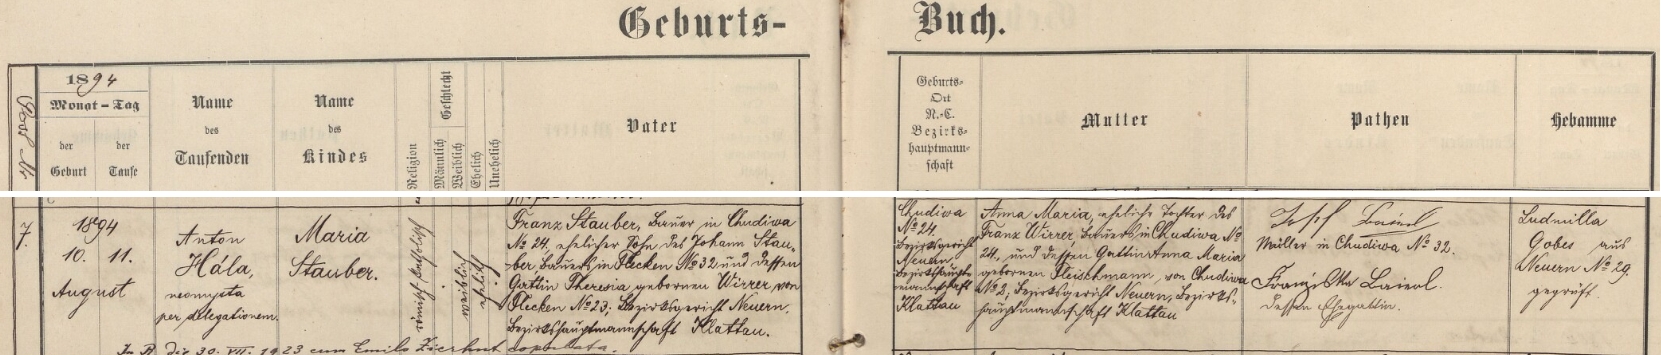 Geburts-
Buch.
Post Nr
1894
Monat - Tag
der
Geburt
der
Taufe
Name
des
Taufenden
Name
des
Kindes
Religion
Geschlecht
Männlich
Weiblich
Ehelich
Unehelich
Vater
Geburts-
Ort
N.-C.
Bezirks-
hauptmann-
schaft
Mutter
Pathen
Hebamme
7.
1894
10. 11.
August
Anton
Hála,
neomysta
per delegationem.
Maria
Stauber.
römisch katholisch
weiblich
ehelich
Franz Stauber, Bauer in Chudiwa
No 24, ehelicher Sohn des Johann Stau-
ber Bauers in Flecken No 32 und dessen
Gattin Theresia gebornen Wirrer von
Flecken No 23; Bezirksgericht Neuern,
Bezirkshauptmannschaft Klattau.
Chudiwa
No 24.
Bezirksgericht
Neuern,
Bezirkshaupt-
mannschaft
Klattau
Anna Maria, eheliche Tochter des
Franz Wirrer, Bauers in Chudiwa No
24, und dessen Gattin Anna Maria
gebornen Fleischmann, von Chudiwa
No 2, Bezirksgericht Neuern, Bezirks-
hauptmannschaft Klattau
Josef
Müller in Chudiwa No 32.
Franziska
dessen Ehegattin.
Ludmilla
Gobes aus
Neuern No 29,
geprüft.
die 30. VII. 1923 cum Emilo copulata.